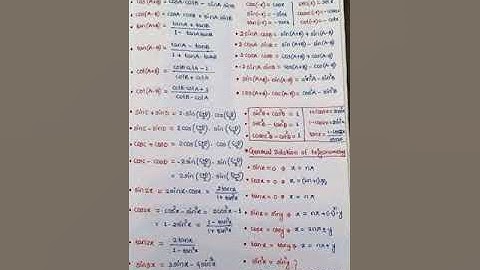 • cos(A+B) = cosA cosB - sinA sinB
• cos(A-B) = cosA cosB + sinA sinB
• tan(A+B) = tanA + tanB / 1 - tanA tanB
• tan(A-B) = tanA - tanB / 1 + tanA tanB
• cot(A+B) = cotB cotA - 1 / cotB + cotA
• cot(A-B) = cotB cotA + 1 / cotB - cotA
• sinC + sinD = 2 sin(C+D/2) · cos(C-D/2)
• sinC - sinD = 2 cos(C+D/2) · sin(C-D/2)
• cosC + cosD = 2 cos(C+D/2) · cos(C-D/2)
• cosC - cosD = -2 sin(C+D/2) · sin(C-D/2)
• sin2x = 2 sinx · cosx = 2tanx / 1+tan²x
• cos2x = cos²x - sin²x = 2cos²x - 1
= 1 - 2sin²x = 1 - tan²x / 1 + tan²x
• tan2x = 2tanx / 1 - tan²x
• sin3x = 3sinx - 4sin³x
cos(-x) = cosx
sin(-x) = -sinx
tan(-x) = -tanx
• 2 sinA cosB = sin(A+B) + sin(A-B)
• 2 cosA sinB = sin(A+B) - sin(A-B)
• 2 cosA cosB = cos(A+B) + cos(A-B)
• sin(A+B) · sin(A-B) = sin²A - sin²B
• cos(A+B) · cos(A-B) = cos²A - sin²B
• General Solution of trigonometry
• sinx = 0 ⇒ x = nπ
• cosx = 0 ⇒ x = (2n+1)π/2
• tanx = 0 ⇒ x = nπ
• sinx = siny ⇒ x = nπ + (-1)ⁿ y
• cosx = cosy ⇒ x = 2nπ ± y
• tanx = tany ⇒ x = nπ + y
• sin²x = sin²y